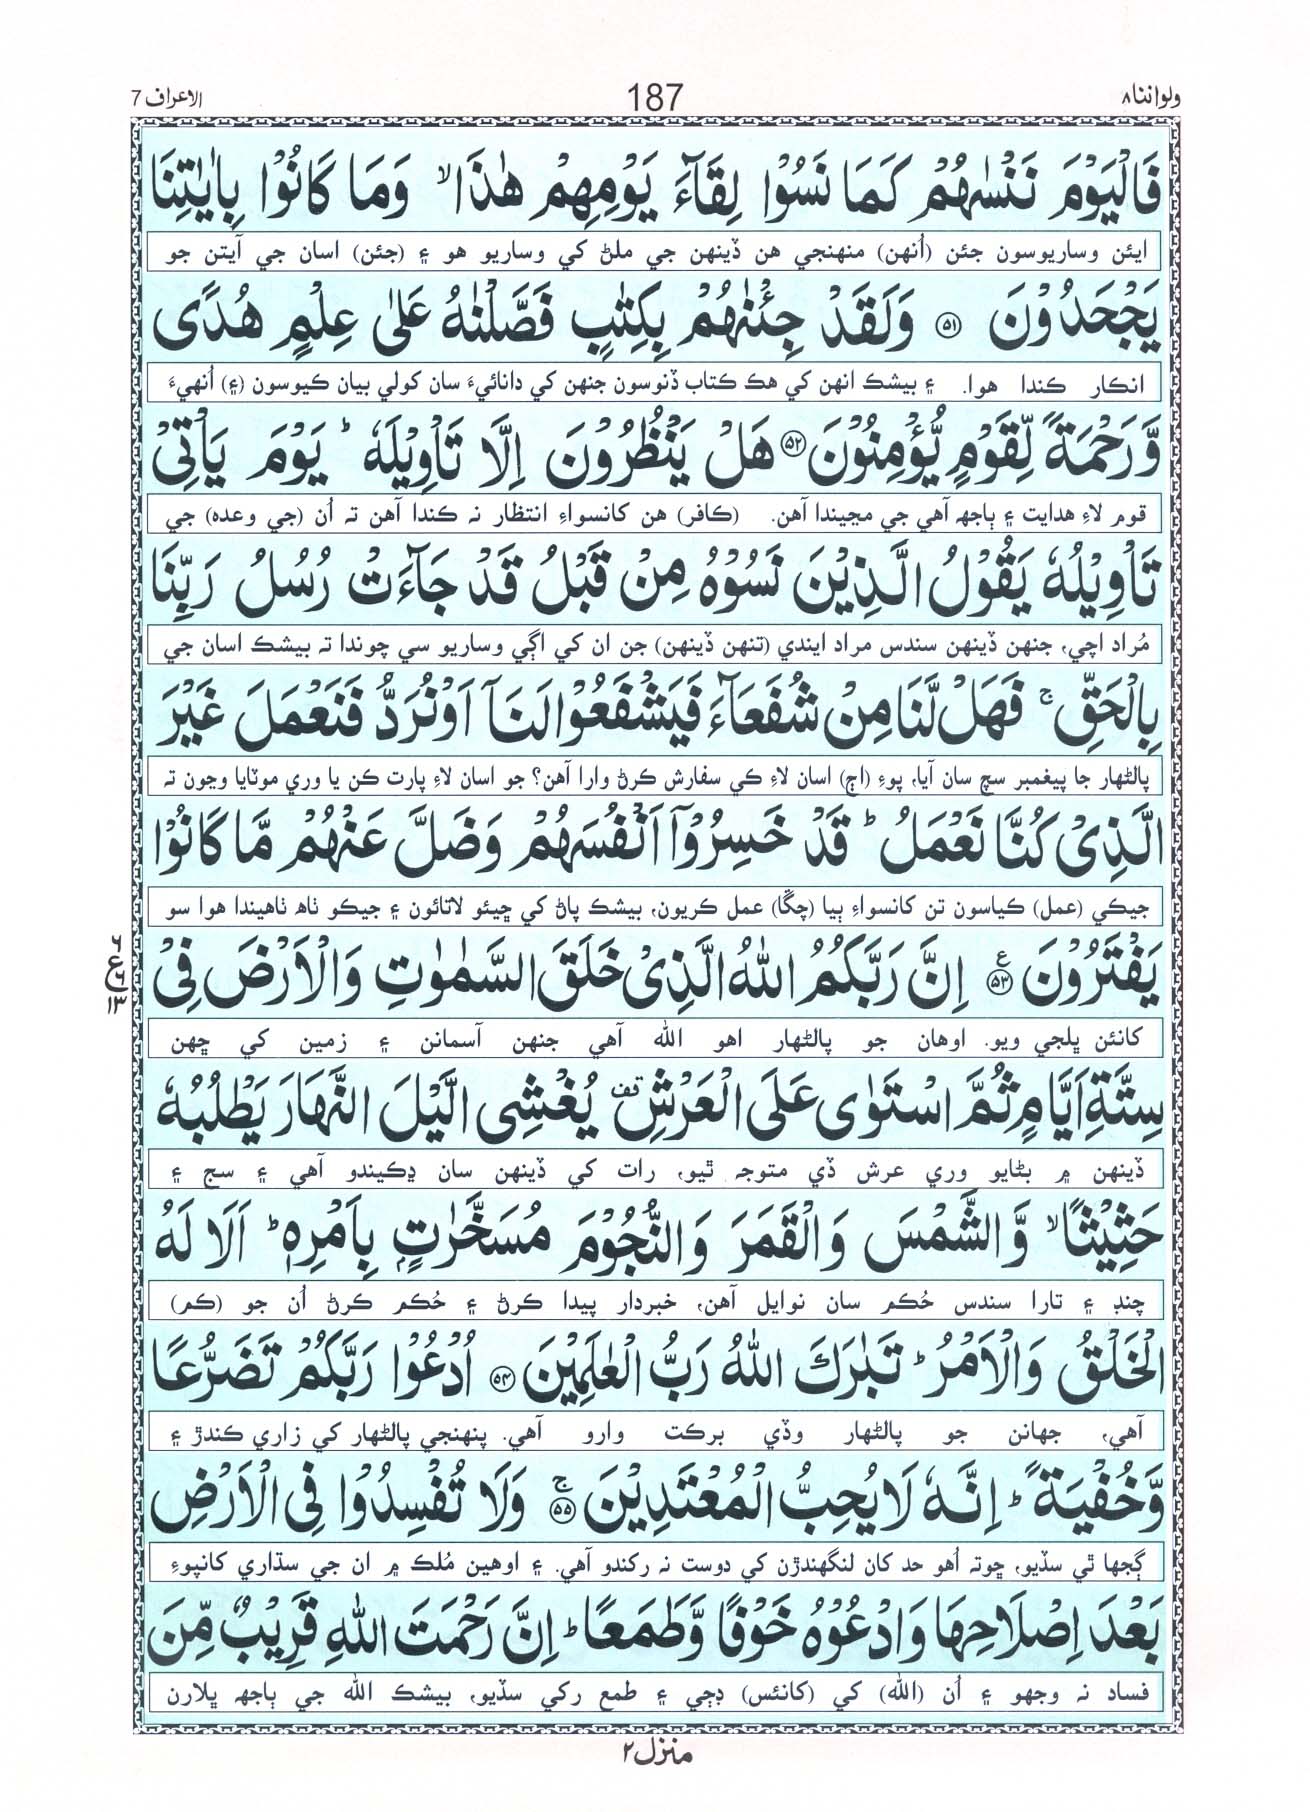 ولواننا ٨
187
الاعراف 7
فَالْيَوْمَ نَنْسٰىهُمْ كَمَا نَسُوْا لِقَآءَ يَوْمِهِمْ هٰذَا ۙ وَمَا كَانُوْا بِاٰيٰتِنَا
ايئن وساريوسون جئن (اُنهن) منهنجي هن ڏينهن جي ملڻ کي وساريو هو ۽ (جئن) اسان جي آيتن جو
يَجْحَدُوْنَ ﴿۵۱﴾ وَلَقَدْ جِئْنٰهُمْ بِكِتٰبٍ فَصَّلْنٰهُ عَلٰى عِلْمٍ هُدًى
انڪار ڪندا هوا. ۽ بيشڪ انهن کي هڪ ڪتاب ڏنوسون جنهن کي دانائيءَ سان کولي بيان ڪيوسون (۽) اُنهيءَ
وَّرَحْمَةً لِّقَوْمٍ يُّؤْمِنُوْنَ ﴿۵۲﴾ هَلْ يَنْظُرُوْنَ اِلَّا تَاْوِيْلَهٗ ؕ يَوْمَ يَاْتِيْ
قوم لاءِ هدايت ۽ ٻاجهه آهي جي مڃيندا آهن. (ڪافر) هن کانسواءِ انتظار نہ ڪندا آهن تہ اُن (جي وعده) جي
تَاْوِيْلُهٗ يَقُوْلُ الَّذِيْنَ نَسُوْهُ مِنْ قَبْلُ قَدْ جَآءَتْ رُسُلُ رَبِّنَا
مُراد اچي، جنهن ڏينهن سندس مراد ايندي (تنهن ڏينهن) جن ان کي اڳي وساريو سي چوندا تہ بيشڪ اسان جي
بِالْحَقِّ ۚ فَهَلْ لَّنَا مِنْ شُفَعَآءَ فَيَشْفَعُوْا لَنَاۤ اَوْ نُرَدُّ فَنَعْمَلَ غَيْرَ
پالڻهار جا پيغمبر سچ سان آيا، پوءِ (اڄ) اسان لاءِ کي سفارش ڪرڻ وارا آهن؟ جو اسان لاءِ پارت ڪن يا وري موٽايا وڃون تہ
الَّذِيْ كُنَّا نَعْمَلُ ؕ قَدْ خَسِرُوْۤا اَنْفُسَهُمْ وَضَلَّ عَنْهُمْ مَّا كَانُوْا
جيڪي (عمل) ڪياسون تن کانسواءِ ٻيا (چڱا) عمل ڪريون، بيشڪ پاڻ کي ڇيئو لاتائون ۽ جيڪو ٺاھ ٺاهيندا هوا سو
يَفْتَرُوْنَ ﴿۵۳﴾ ع اِنَّ رَبَّكُمُ اللّٰهُ الَّذِيْ خَلَقَ السَّمٰوٰتِ وَالْاَرْضَ فِيْ
٦ ع ١٣
کانئن ڀلجي ويو. اوهان جو پالڻهار اهو الله آهي جنهن آسمانن ۽ زمين کي ڇهن
سِتَّةِ اَيَّامٍ ثُمَّ اسْتَوٰى عَلَى الْعَرْشِ قف يُغْشِى الَّيْلَ النَّهَارَ يَطْلُبُهٗ
ڏينهن ۾ بڻايو وري عرش ڏي متوجہ ٿيو، رات کي ڏينهن سان ڍڪيندو آهي ۽ سج ۽
حَثِيْثًا ۙ وَّالشَّمْسَ وَالْقَمَرَ وَالنُّجُوْمَ مُسَخَّرٰتٍۭ بِاَمْرِهٖ ؕ اَلَا لَهُ
چنڊ ۽ تارا سندس حُڪم سان نوايل آهن، خبردار پيدا ڪرڻ ۽ حُڪم ڪرڻ اُن جو (ڪم)
الْخَلْقُ وَالْاَمْرُ ؕ تَبٰرَكَ اللّٰهُ رَبُّ الْعٰلَمِيْنَ ﴿۵۴﴾ اُدْعُوْا رَبَّكُمْ تَضَرُّعًا
آهي، جهانن جو پالڻهار وڏي برڪت وارو آهي. پنهنجي پالڻهار کي زاري ڪندڙ ۽
وَّخُفْيَةً ؕ اِنَّهٗ لَا يُحِبُّ الْمُعْتَدِيْنَ ﴿۵۵﴾ ۚ وَلَا تُفْسِدُوْا فِى الْاَرْضِ
ڳجها ٿي سڏيو، ڇوتہ اُهو حد کان لنگهندڙن کي دوست نہ رکندو آهي. ۽ اوهين مُلڪ ۾ ان جي سڌاري کانپوءِ
بَعْدَ اِصْلَاحِهَا وَادْعُوْهُ خَوْفًا وَّطَمَعًا ؕ اِنَّ رَحْمَتَ اللّٰهِ قَرِيْبٌ مِّنَ
فساد نہ وجهو ۽ اُن (الله) کي (کانئس) ڊڄي ۽ طمع رکي سڏيو، بيشڪ الله جي ٻاجهه ڀلارن
منزل ٢